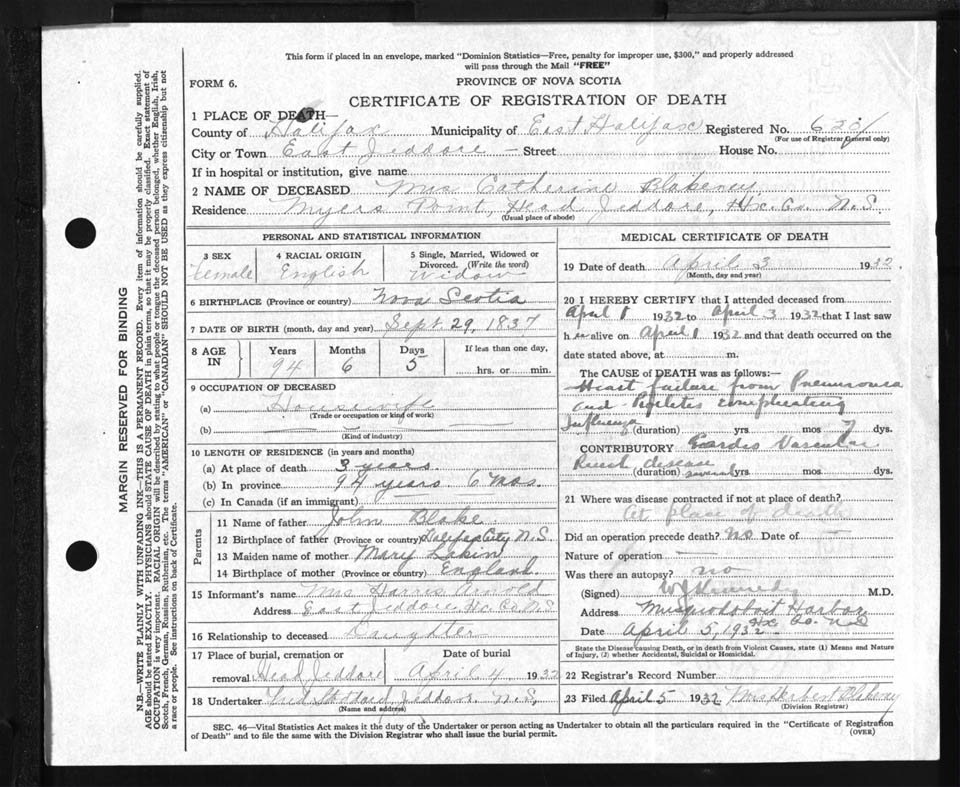 This form if placed in an envelope, marked "Dominion Statistics—Free, penalty for improper use, $300," and properly addressed
will pass through the Mail "FREE"
FORM 6.
PROVINCE OF NOVA SCOTIA
CERTIFICATE OF REGISTRATION OF DEATH
1 PLACE OF DEATH—
County of Halifax Municipality of East Halifax Registered No.
(For use of Registrar General only)
City or Town East Jeddore — Street House No.
If in hospital or institution, give name
2 NAME OF DECEASED Mrs Catherine Blakeney
Residence Myers Point, Head Jeddore, Hx. Co. N.S.
(Usual place of abode)
PERSONAL AND STATISTICAL INFORMATION
3 SEX
Female
4 RACIAL ORIGIN
English
5 Single, Married, Widowed or
Divorced. (Write the word)
Widow
6 BIRTHPLACE (Province or country) Nova Scotia
7 DATE OF BIRTH (month, day and year) Sept. 29, 1837
8 AGE IN
Years Months Days If less than one day,
94 6 5 hrs. or min.
9 OCCUPATION OF DECEASED
(a) Housewife
(Trade or occupation or kind of work)
(b)
(Kind of industry)
10 LENGTH OF RESIDENCE (in years and months)
(a) At place of death 3 years.
(b) In province 94 years. 6 mos.
(c) In Canada (if an immigrant)
Parents
11 Name of father John Blake
12 Birthplace of father (Province or country) Halifax City N.S.
13 Maiden name of mother Mary Lakin
14 Birthplace of mother (Province or country) England
15 Informant's name Mrs Harris Arnold
Address East Jeddore Hx. Co N.S
16 Relationship to deceased Daughter
17 Place of burial, cremation or Date of burial
removal Head Jeddore April 4 1932
18 Undertaker Jeddore N.S,
(Name and address)
MEDICAL CERTIFICATE OF DEATH
19 Date of death April 3 1932.
(Month, day and year)
20 I HEREBY CERTIFY that I attended deceased from
April 1 1932 to April 3 1932 that I last saw
h er alive on April 1 1932 and that death occurred on the
date stated above, at m.
The CAUSE of DEATH was as follows:—
Heart failure from Pneumonia
and complicating
Influenza (duration) yrs. mos 7 dys.
CONTRIBUTORY Cardio Vascular
disease (duration) several yrs. mos. dys.
21 Where was disease contracted if not at place of death?
At place of death
Did an operation precede death? no Date of —
Nature of operation —
Was there an autopsy? no
(Signed) W J Kennedy M.D.
Address Musquodoboit Harbor
Hx Co. N.S
Date April 5, 1932
State the Disease causing Death, or in death from Violent Causes, state (1) Means and Nature
of Injury, (2) whether Accidental, Suicidal or Homicidal.
22 Registrar's Record Number
23 Filed April 5 1932 Mrs Herbert Blakeney
(Division Registrar)
SEC. 46—Vital Statistics Act makes it the duty of the Undertaker or person acting as Undertaker to obtain all the particulars required in the "Certificate of Registration
of Death" and to file the same with the Division Registrar who shall issue the burial permit.
(OVER)
MARGIN RESERVED FOR BINDING
N.B.—WRITE PLAINLY WITH UNFADING INK—THIS IS A PERMANENT RECORD. Every item of information should be carefully supplied.
AGE should be stated EXACTLY. PHYSICIANS should STATE CAUSE OF DEATH in plain terms, so that it may be properly classified. Exact statement of
OCCUPATION is very important. RACIAL ORIGIN will be described by stating to what people or tongue the deceased person belonged, whether English, Irish,
Scotch, French, German, Russian, Ruthenian, etc. The terms "AMERICAN" or "CANADIAN" SHOULD NOT BE USED as they express citizenship but not
a race or people. See instructions on back of Certificate.